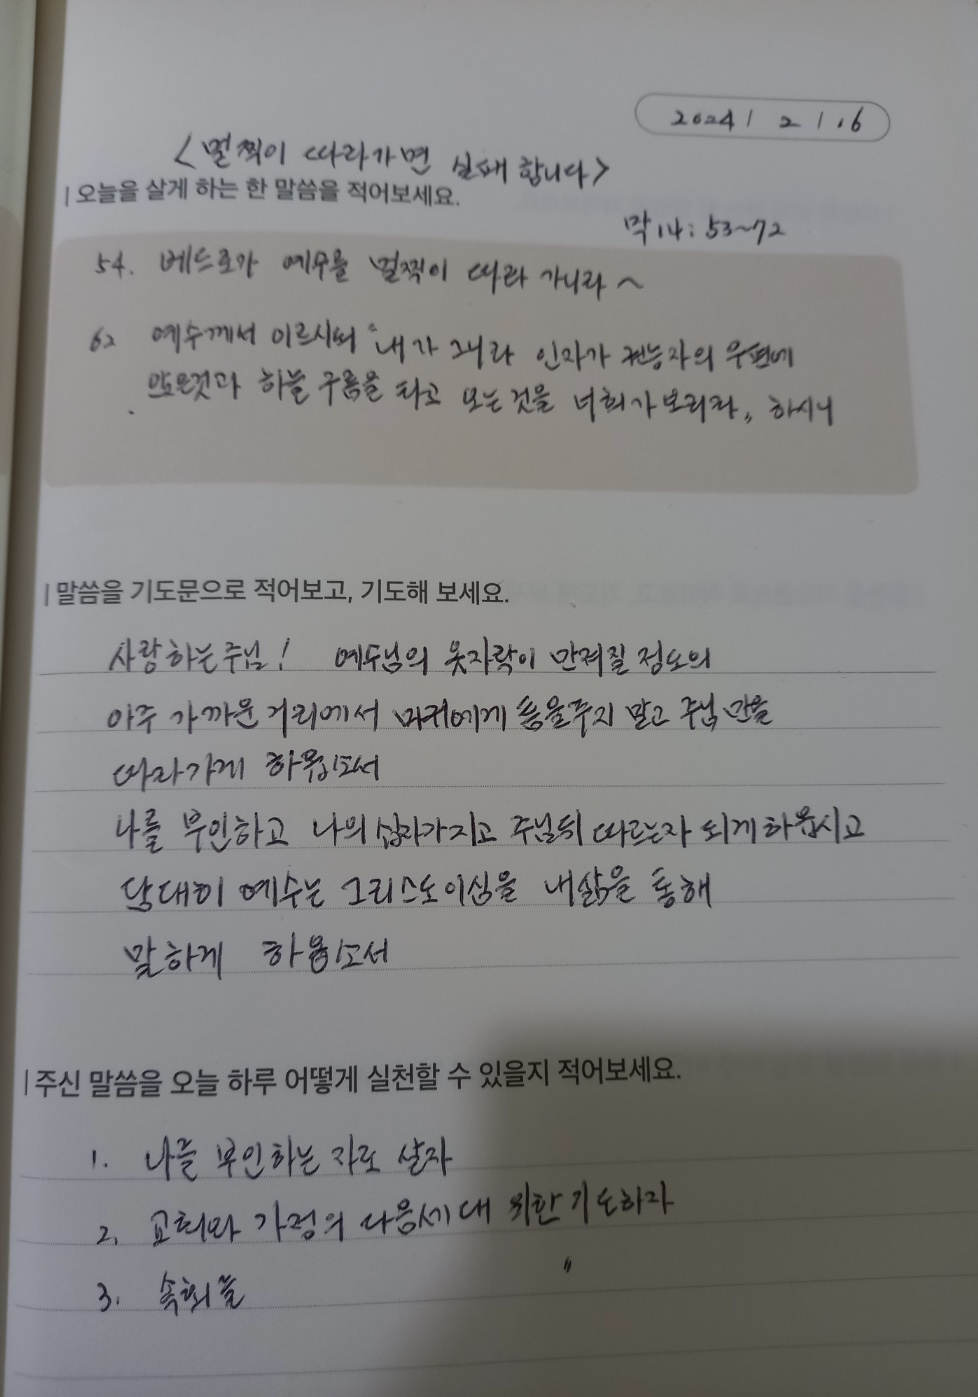 2024 / 2 / 16
<멀찍이 따라가면 실패합니다>
오늘을 살게 하는 한 말씀을 적어보세요.
막 14: 53~72
54. 베드로가 예수를 멀찍이 따라 가니라~
62 예수께서 이르시되 "내가 그니라 인자가 권능자의 우편에
앉은것과 하늘 구름을 타고 오는 것을 너희가 보리라" 하시니
말씀을 기도문으로 적어보고, 기도해 보세요.
사랑하는 주님! 예수님의 옷자락이 만져질 정도의
아주 가까운 거리에서 마귀에게 틈을주지 말고 주님 만을
따라가게 하옵소서
나를 부인하고 나의 십자가지고 주님뒤 따르는자 되게하옵시고
담대히 예수는 그리스도이심을 내삶을 통해
말하게 하옵소서
주신 말씀을 오늘 하루 어떻게 실천할 수 있을지 적어보세요.
1. 나를 부인하는 자로 살자
2. 교회와 가정의 다음세대 위한 기도하자
3. 속회들 "